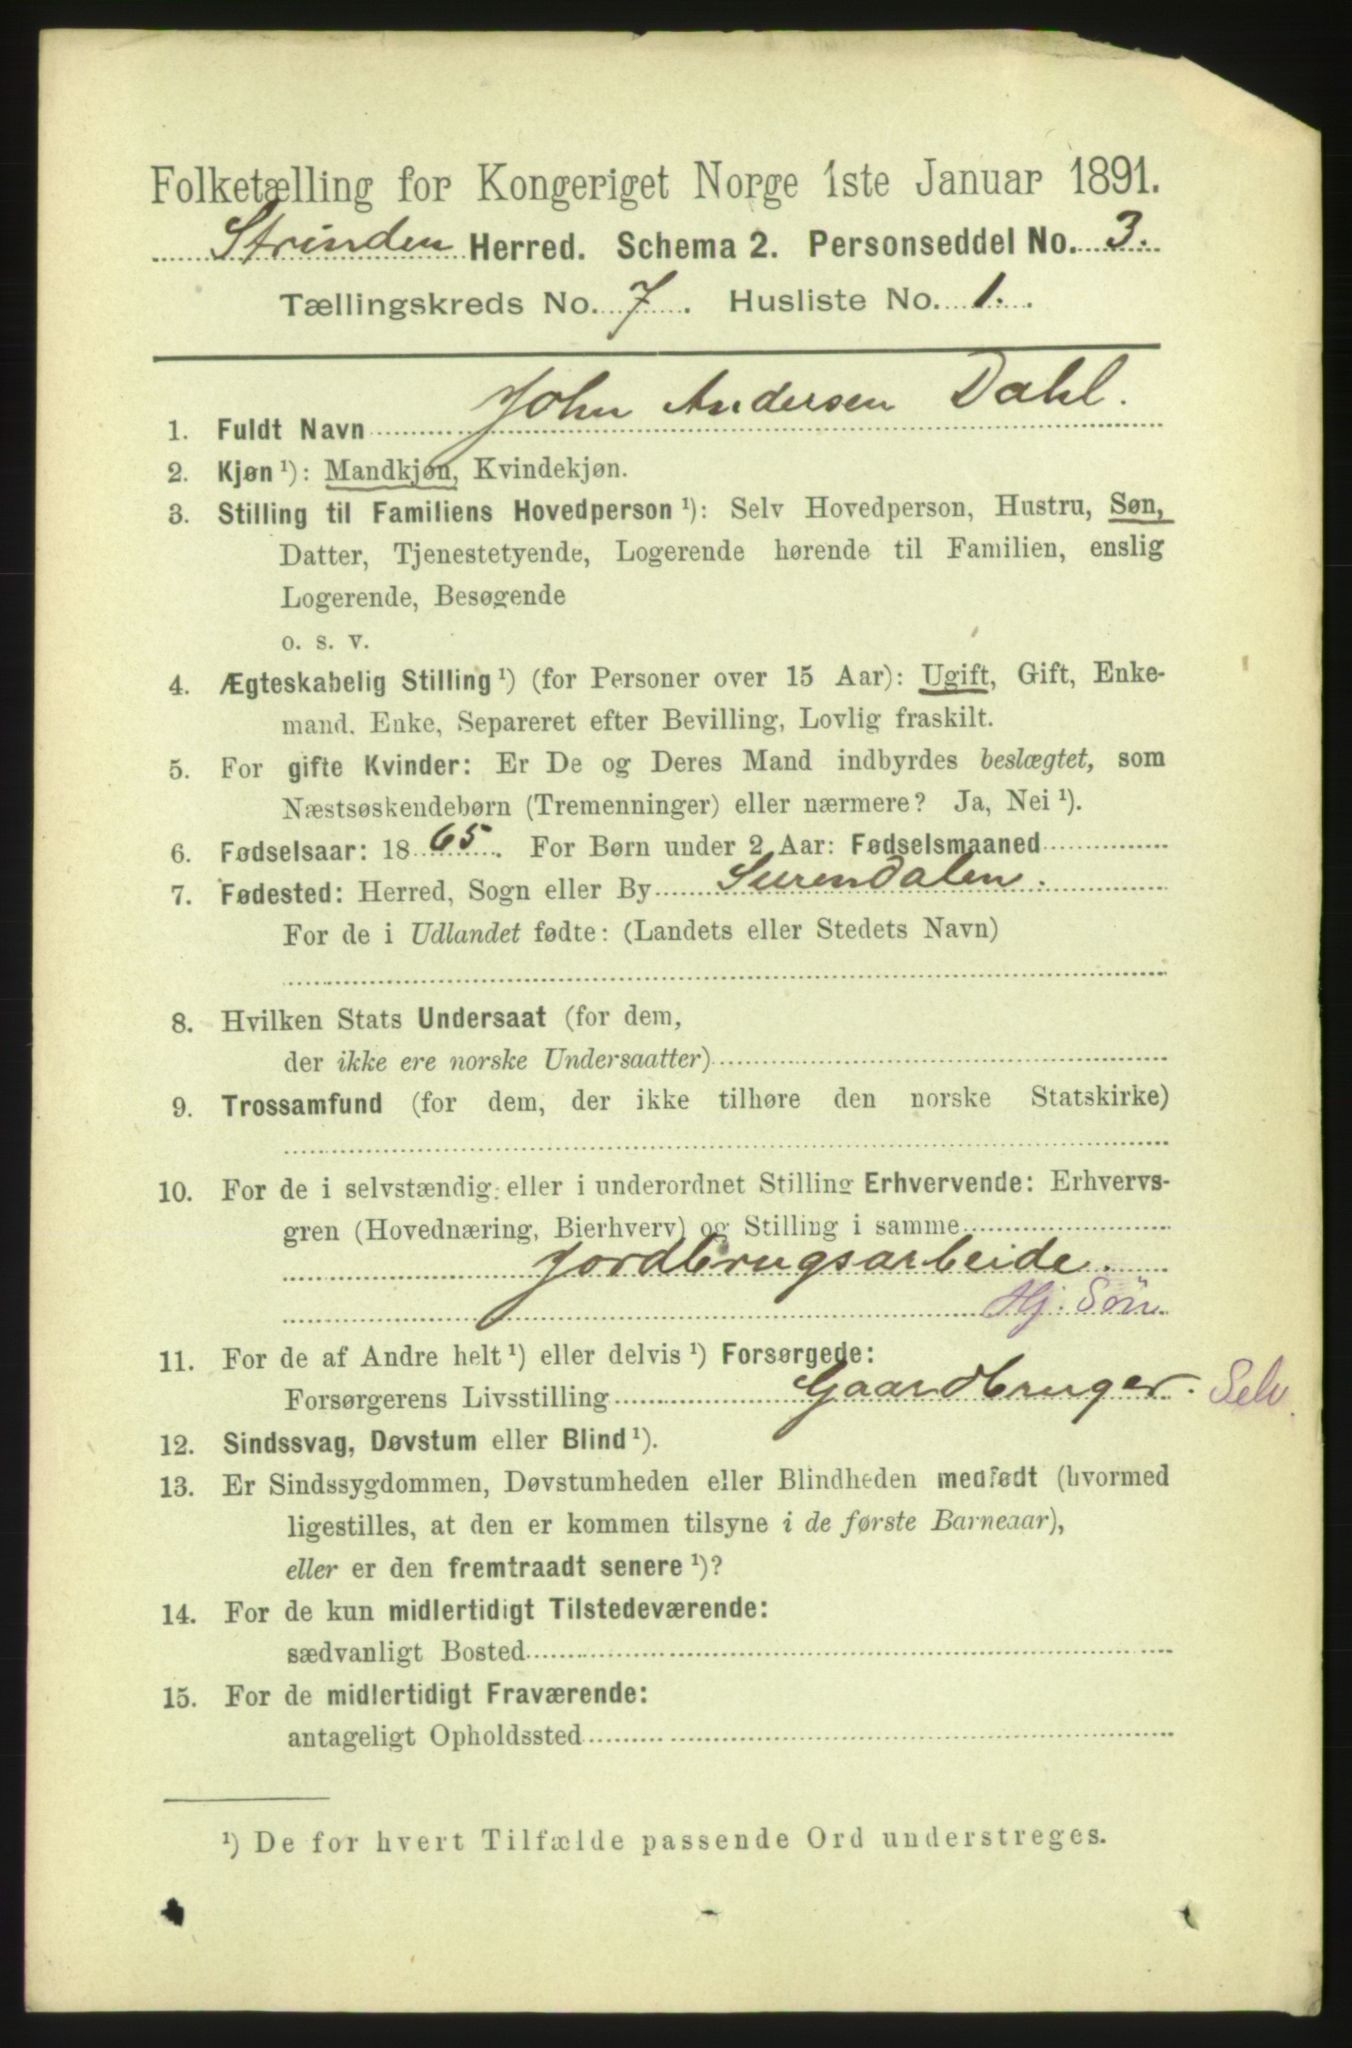 Folketælling for Kongeriget Norge 1ste Januar 1891.
Strinden Herred. Schema 2. Personseddel No. 3.
Tællingskreds No. 7. Husliste No. 1.
1. Fuldt Navn John Andersen Dahl.
2. Kjøn ¹): Mandkjøn, Kvindekjøn.
3. Stilling til Familiens Hovedperson ¹): Selv Hovedperson, Hustru, Søn,
Datter, Tjenestetyende, Logerende hørende til Familien, enslig
Logerende, Besøgende
o. s. v.
4. Ægteskabelig Stilling ¹) (for Personer over 15 Aar): Ugift, Gift, Enke-
mand, Enke, Separeret efter Bevilling, Lovlig fraskilt.
5. For gifte Kvinder: Er De og Deres Mand indbyrdes beslægtet, som
Næstsøskendebørn (Tremenninger) eller nærmere? Ja, Nei ¹).
6. Fødselsaar: 1865. For Børn under 2 Aar: Fødselsmaaned
7. Fødested: Herred, Sogn eller By Surendalen.
For de i Udlandet fødte: (Landets eller Stedets Navn)
8. Hvilken Stats Undersaat (for dem,
der ikke ere norske Undersaatter)
9. Trossamfund (for dem, der ikke tilhøre den norske Statskirke)
10. For de i selvstændig eller i underordnet Stilling Erhvervende: Erhvervs-
gren (Hovednæring, Bierhverv) og Stilling i samme
Jordbrugsarbeide.
Hj. Søn
11. For de af Andre helt ¹) eller delvis ¹) Forsørgede:
Forsørgerens Livsstilling Gaardbruger. Selv.
12. Sindssvag, Døvstum eller Blind ¹).
13. Er Sindssygdommen, Døvstumheden eller Blindheden medfødt (hvormed
ligestilles, at den er kommen tilsyne i de første Barneaar),
eller er den fremtraadt senere ¹)?
14. For de kun midlertidigt Tilstedeværende:
sædvanligt Bosted
15. For de midlertidigt Fraværende:
antageligt Opholdssted
¹) De for hvert Tilfælde passende Ord understreges.